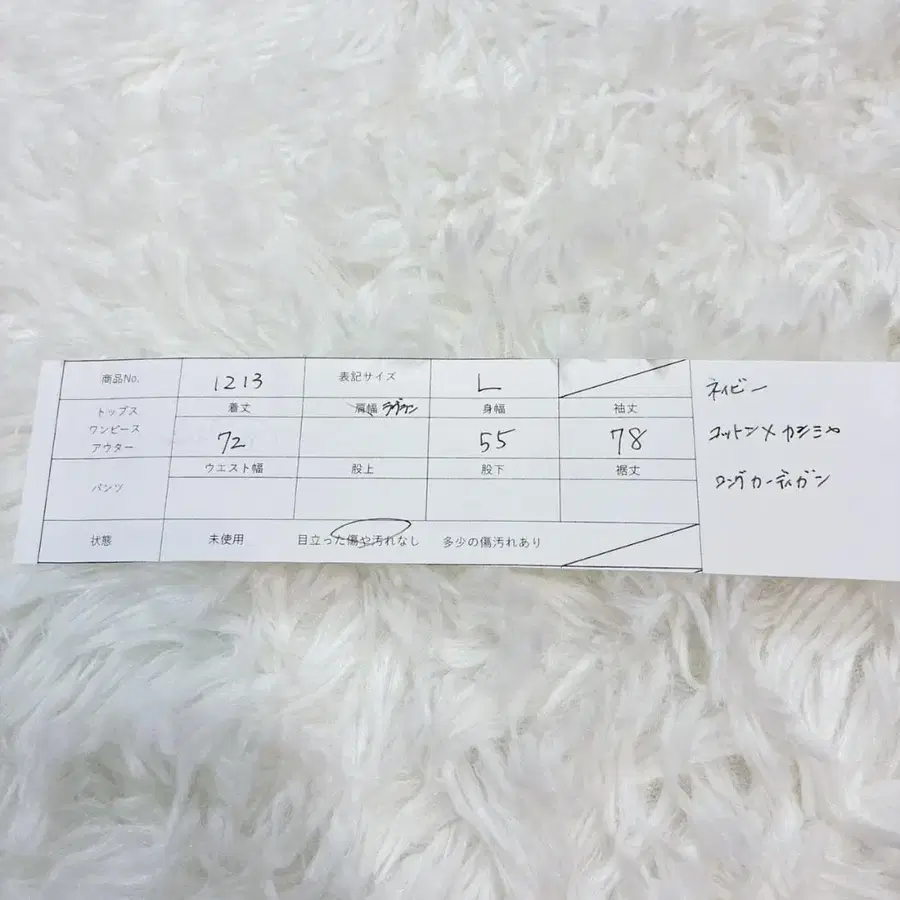 商品No. 1213 表記サイズ L
トップス ワンピース アウター 着丈 肩幅 ラグラン 身幅 袖丈
72 55 78
パンツ ウエスト幅 股上 股下 裾丈
状態 未使用 目立った傷や汚れなし 多少の傷汚れあり
ネイビー
コットン×カシミヤ
ロングカーディガン